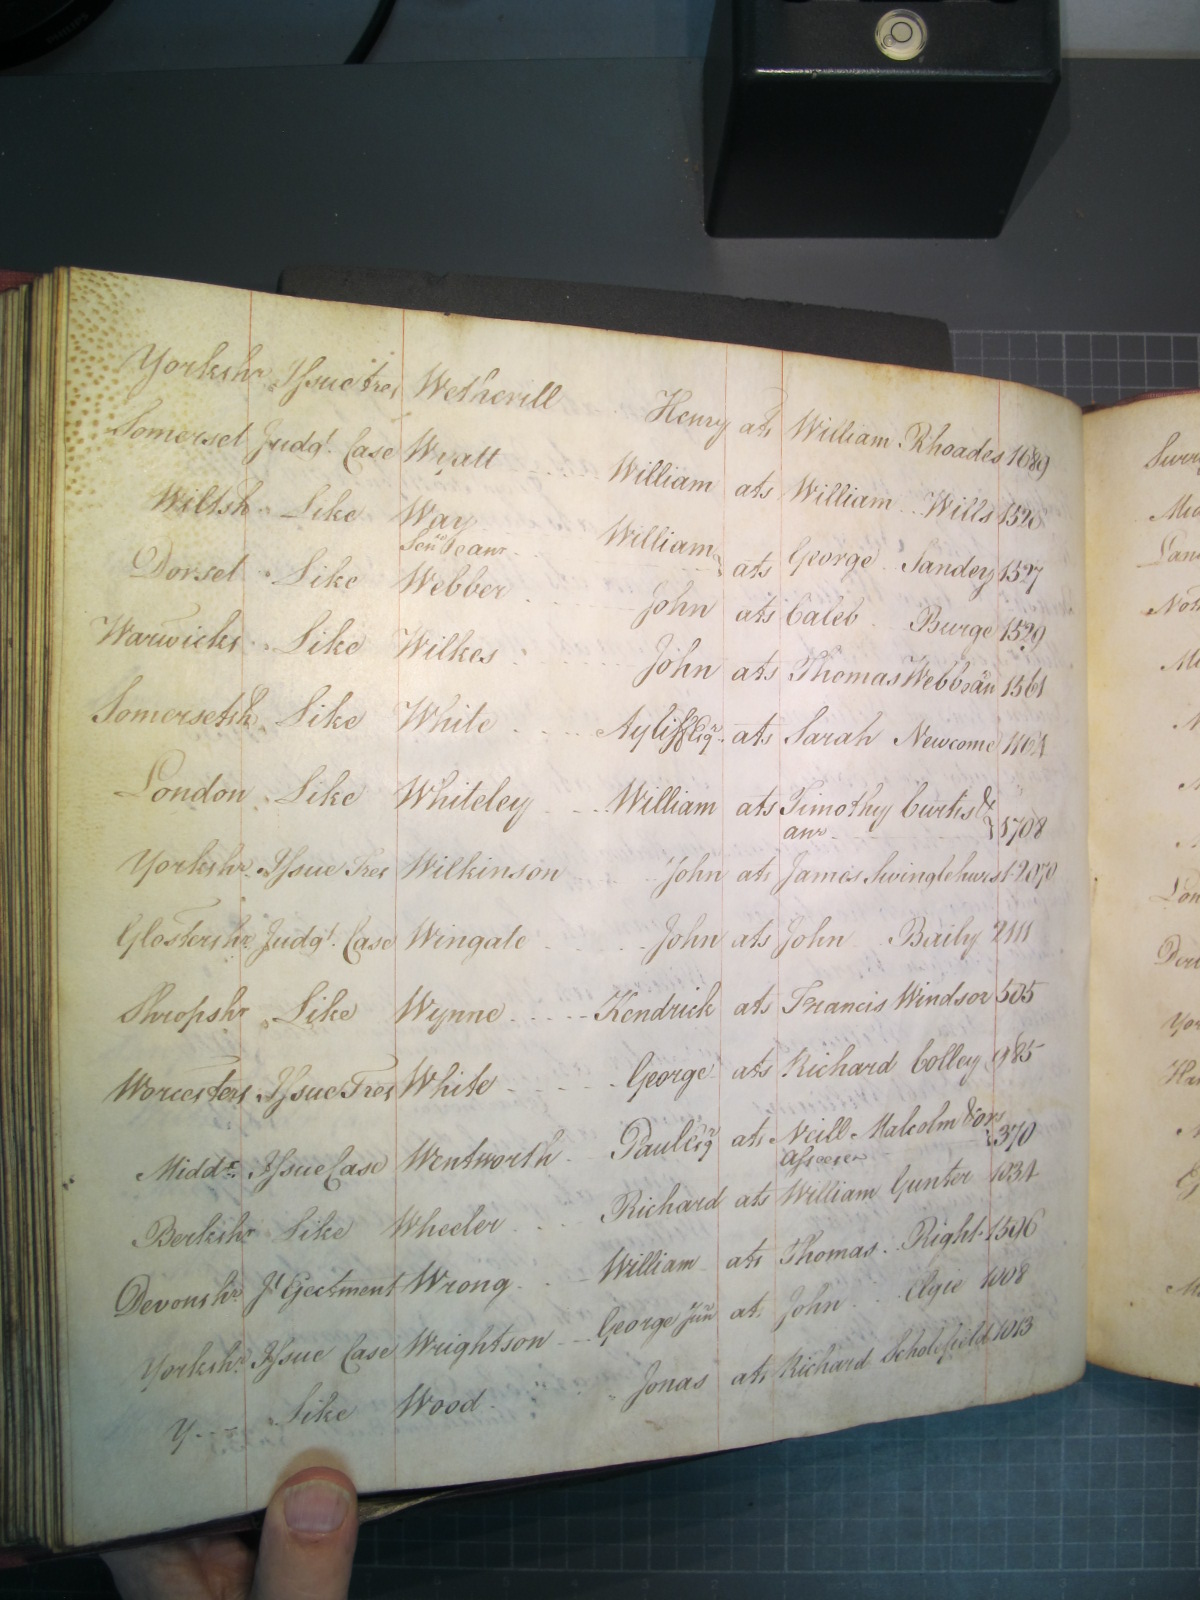 Yorkshr Issue Tres Wetherill Henry ats William Rhoades 1689
Somerset Judgt. Case Wyatt William ats William Wills 1526
Wiltsh Like Way William ats George Sandey 1527
Senr & anr
Dorset Like Webber John ats Caleb Burge 1529
Warwicks Like Wilkes John ats Thomas Webb 1561
Somersetsh Like White Ayliff Esqr. ats Sarah Newcome
London Like Whiteley William ats Timothy Curtis & 1708
anr
Yorkshr Issue Tres Wilkinson John ats James Swinglehurst 2070
Glostershr Judgt. Case Wingate John ats John Baily 2111
Shropshr Like Wynne Kendrick ats Francis Windsor 505
Worcesters Issue Tres White George ats Richard Colley 985
Middx Issue Case Wentworth Paul Esqr ats Neill Malcolm & ors 370
Assees
Berkshr Like Wheeler Richard ats William Gunter 1034
Devonshr Jt Ejectment Wrong William ats Thomas Right 1596
Yorkshr Issue Case Wrightson George Junr ats John Elgie 1008
Y Like Wood Jonas ats Richard Scholefield 1013